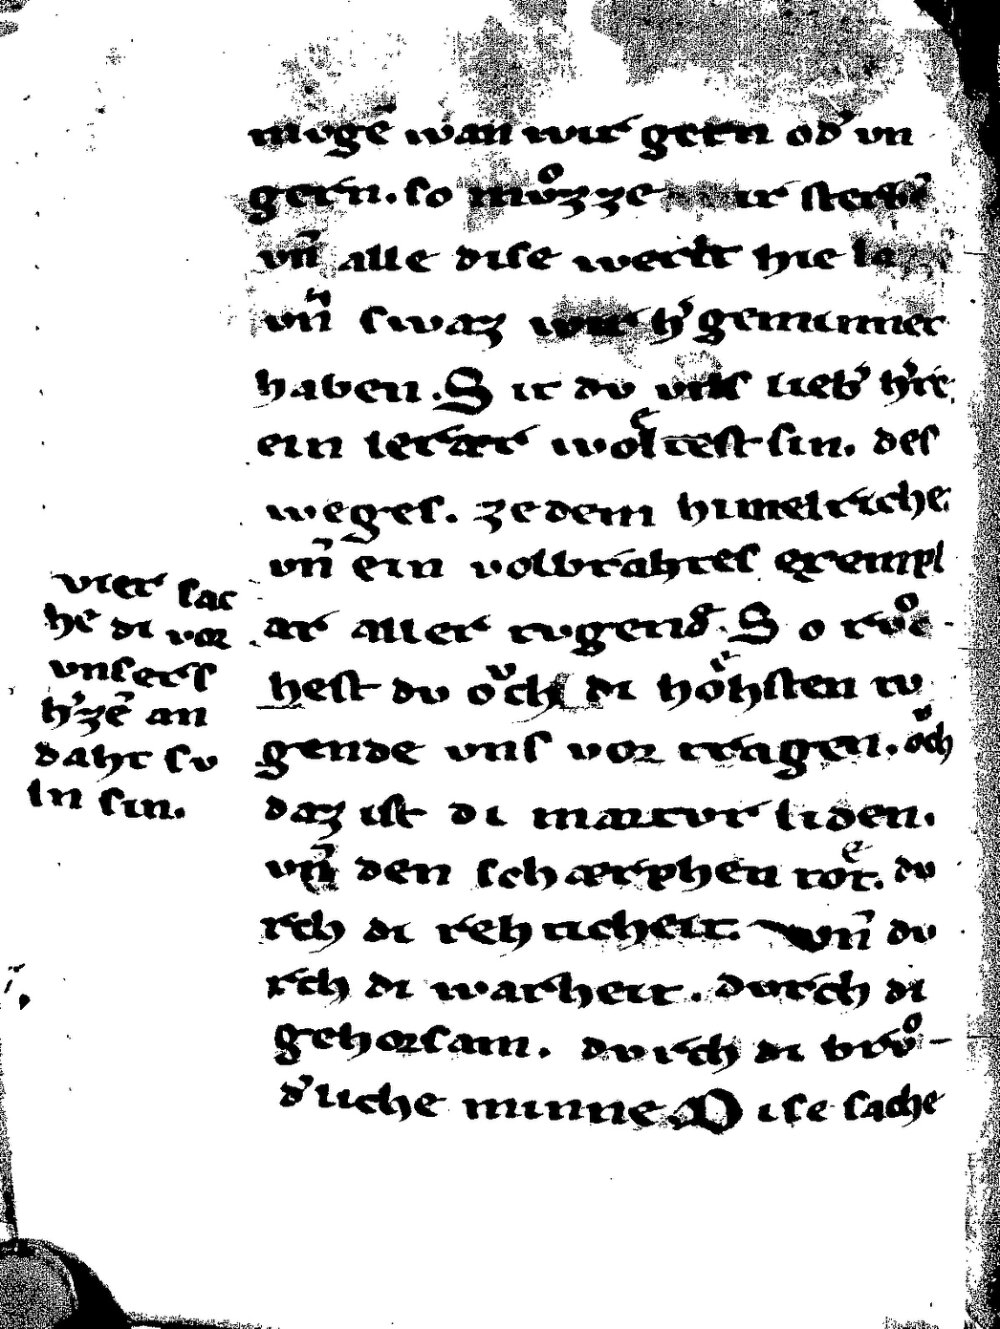 mvgē wan wir gern od' vn
gern. so mvͦzze wir sterbē
vn̄ alle dise werlt hie la
vn̄ swaz wir h' geminnet
haben. Sit dv vns lieb' h're
ein lerær woͤltest sin. des
weges. ze dem himelriche
vn̄ ein volbrahtes exempl
ar aller tvgend. So rvͦ
hest dv oͮch di hoͤhsten tv
gende vns vor tragen. oͮch
daz ist di martvr liden.
vn̄ den schærphen toͤt. dv
rch di rehticheit. vn̄ dv
rch di warheit. dvrch di
gehorsam. dvrch di brvͦ-
d'liche minne. Dise sache
vier sac
hē di vor
vnsers
h'zē an
daht sv
ln sin.